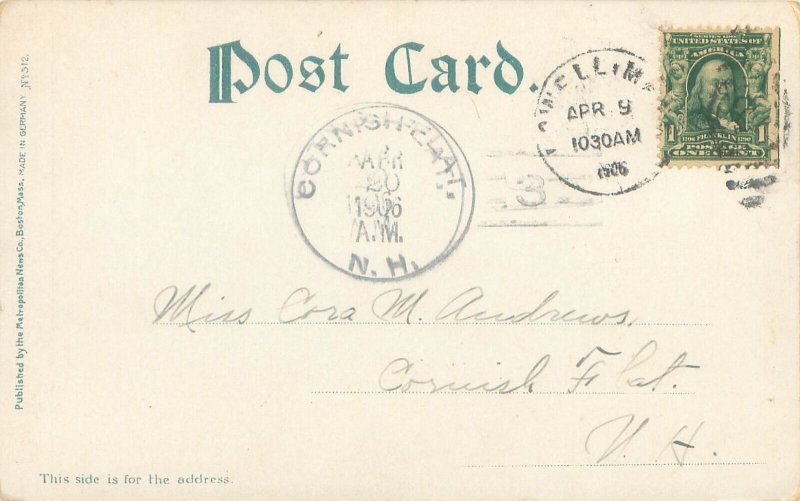 Post Card.
LOWELL, MA
APR 9
1030AM
1906
SERIES 1902
UNITED STATES OF
AMERICA
1706 FRANKLIN 1790
1 POSTAGE 1
ONE CENT
CORNISH FLAT,
APR
20
1906
A.M.
N.H.
3
Miss Cora M. Andrews,
Cornish Flat.
N. H.
This side is for the address.
Published by the Metropolitan News Co., Boston, Mass. MADE IN GERMANY No 512.